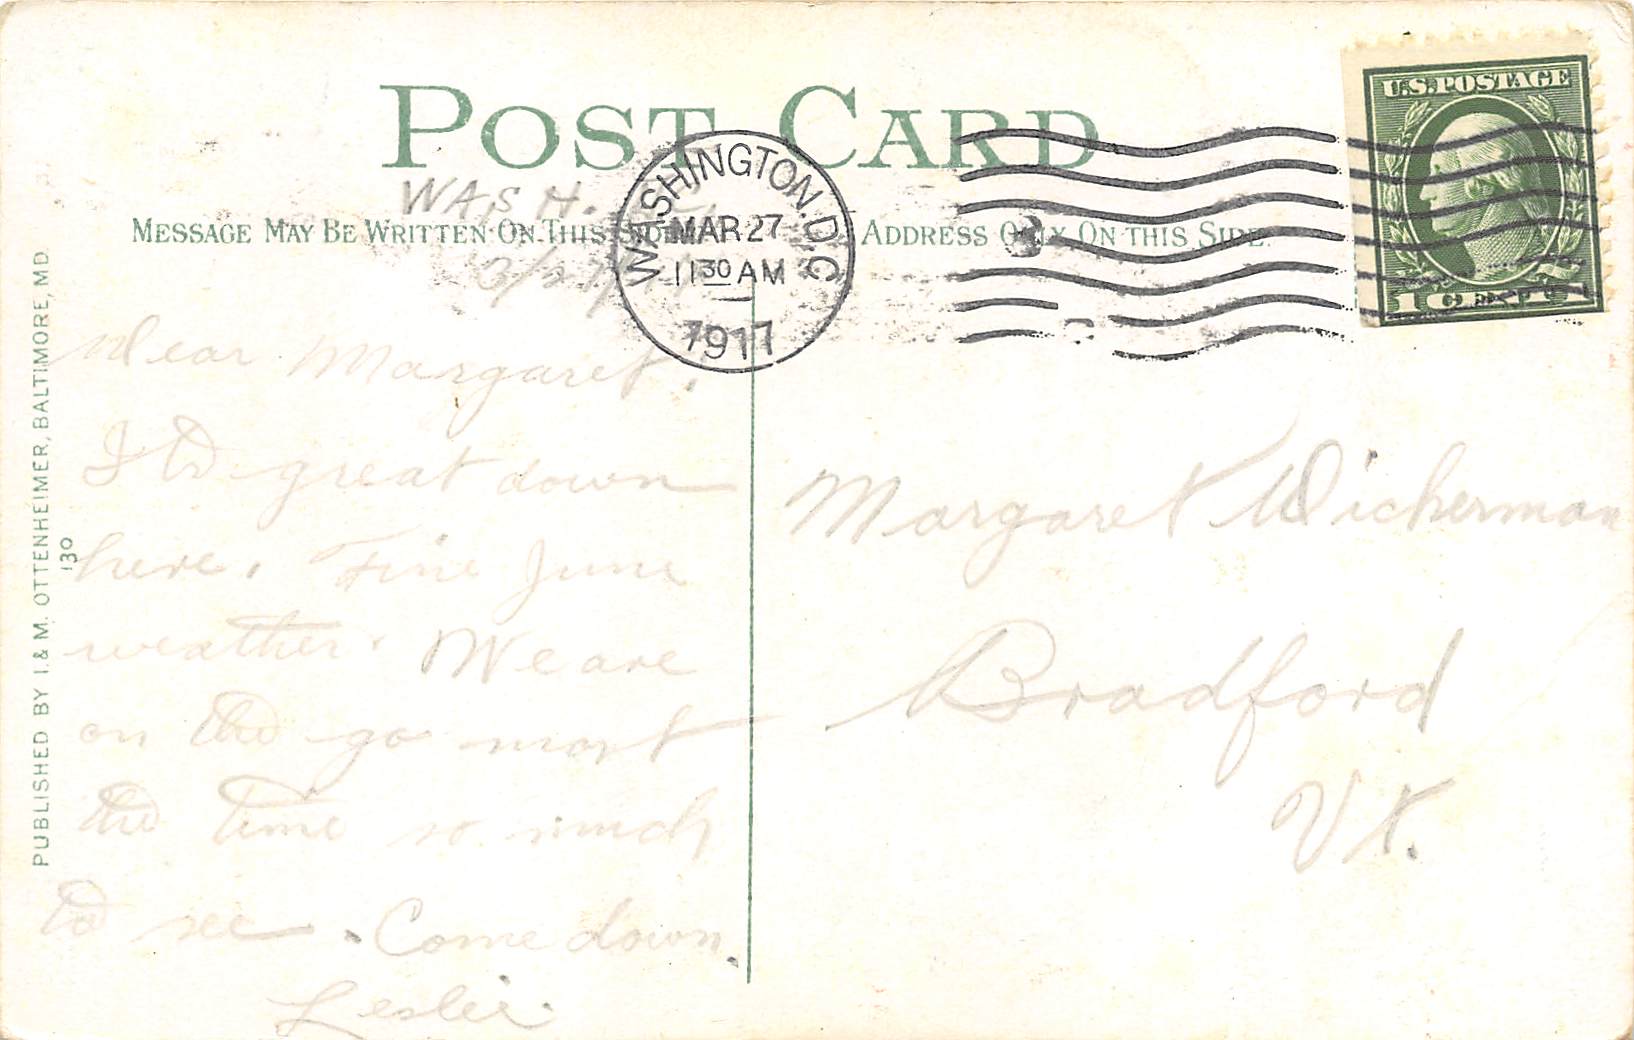 POST CARD
U.S. POSTAGE
WASHINGTON. D.C.
MAR 27
11 30 AM
1917
MESSAGE MAY BE WRITTEN ON THIS SIDE
ADDRESS ONLY ON THIS SIDE.
WASH.
3/27/
Dear Margaret,
great down
here. Fine June
weather. We are
on the go most
the time so much
to see. Come down.
Leslie.
Margaret Wickerman
Bradford
Vt.
PUBLISHED BY I. & M. OTTENHEIMER, BALTIMORE, MD.
130